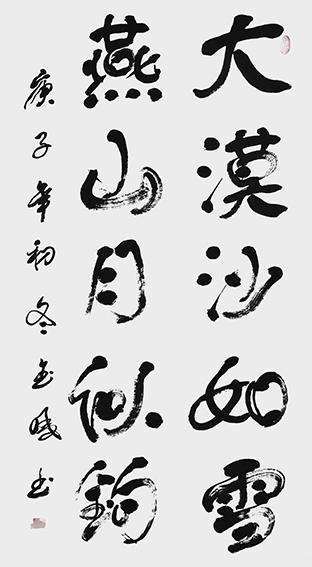 大漠沙如雪
燕山月似鉤
庚子年初冬金成书